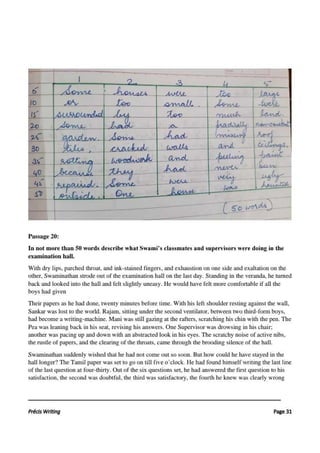 1 2 3 4 5
5 Some houses were too large
10 or too small. Some were
15 surrounded by too much land.
20 Some had a
25 garden. Some had missing roof
30 tiles. cracked walls and ceilings,
35 rotting woodwork and peeling paint
40 because they had never been
45 repaired. Some were very ugly
50 outside. One house was haunted
(50 words)
Passage 20:
In not more than 50 words describe what Swami's classmates and supervisors were doing in the
examination hall.
With dry lips, parched throat, and ink-stained fingers, and exhaustion on one side and exaltation on the
other, Swaminathan strode out of the examination hall on the last day. Standing in the veranda, he turned
back and looked into the hall and felt slightly uneasy. He would have felt more comfortable if all the
boys had given
Their papers as he had done, twenty minutes before time. With his left shoulder resting against the wall,
Sankar was lost to the world. Rajam, sitting under the second ventilator, between two third-form boys,
had become a writing-machine. Mani was still gazing at the rafters, scratching his chin with the pen. The
Pea was leaning back in his seat, revising his answers. One Supervisor was drowsing in his chair;
another was pacing up and down with an abstracted look in his eyes. The scratchy noise of active nibs,
the rustle of papers, and the clearing of the throats, came through the brooding silence of the hall.
Swaminathan suddenly wished that he had not come out so soon. But how could he have stayed in the
hall longer? The Tamil paper was set to go on till five o'clock. He had found himself writing the last line
of the last question at four-thirty. Out of the six questions set, he had answered the first question to his
satisfaction, the second was doubtful, the third was satisfactory, the fourth he knew was clearly wrong
Précis Writing Page 31